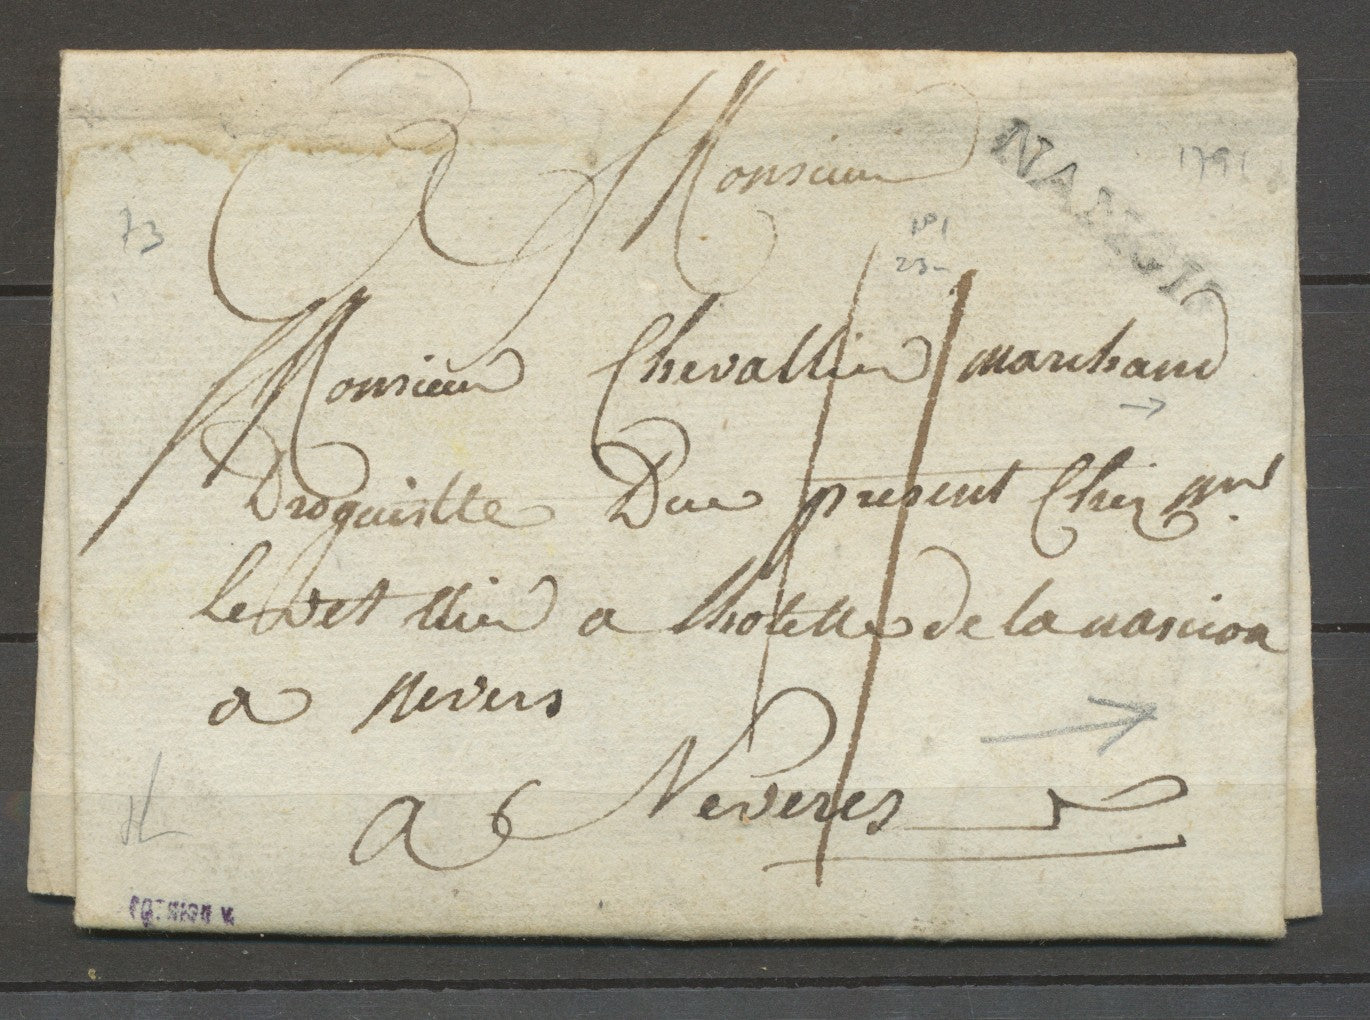 Monsieur
NANCI
1791
73
n°1
23-
Monsieur Chevallier marchand
Droguistte Due present Chez mr
Le vet llier a lhotelle de la nascion
a nevers
a Neveres